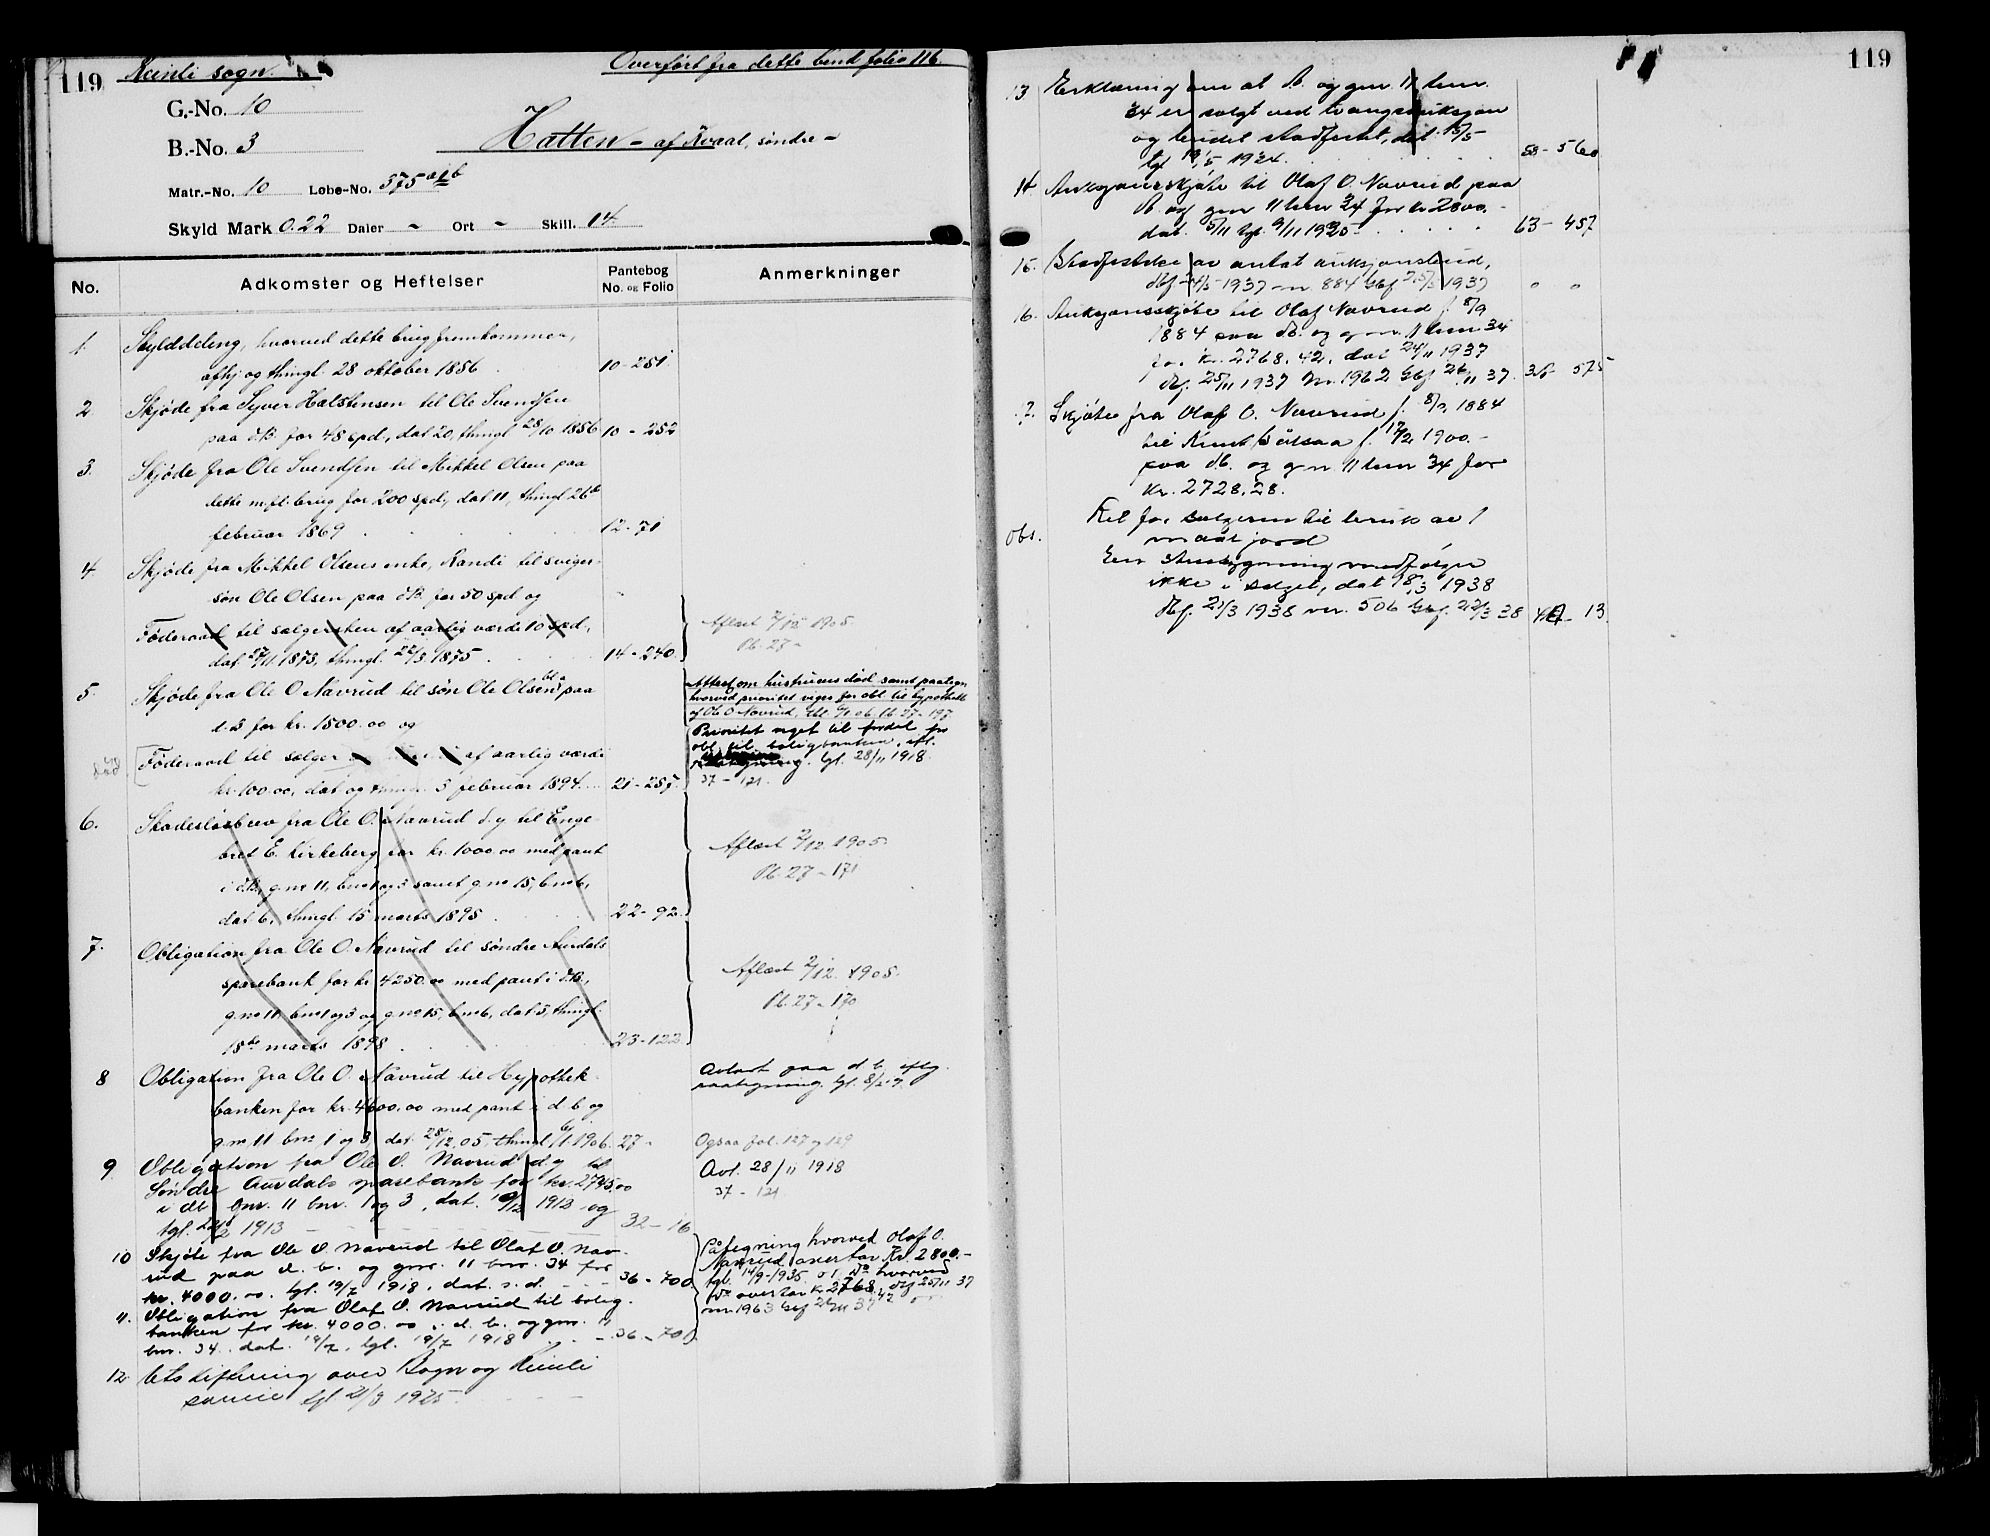 119 Reinli sogn. Overført fra dette bind folio 116.
G.-No. 10
B.-No. 3
Hatten - af Kvaal, søndre -
Matr.-No. 10 Løbe-No. 375 a & b
Skyld Mark 0.22 Daler - Ort - Skill. 14
No. Adkomster og Heftelser Pantebog No. og Folio Anmerkninger
1. Skylddeling, hvorved dette brug fremkommer,
afhj og thingl. 28 oktober 1856 10-251
2 Skjøde fra Syver Halstensen til Ole Svendsen
paa d.B. for 48 spd., dat 20, thingl 28/10 1856 10-252
3. Skjøde fra Ole Svendsen til Mikkel Olsen paa
dette m.fl. brug for 200 spd., dat 11, thingl. 26de
februar 1869 12-71
4. Skjøde fra Mikkel Olsens enke, Randi til sviger-
søn Ole Olsen paa d.B. for 50 spd og
Føderaad til sælgersken af aarlig værdi 10 spd.,
dat. 27/11 1873, thingl. 22/3 1875 14-240.
Aflæst 2/12 1905.
Pb. 27 -
5. Skjøde fra Ole O. Navrud til søn Ole Olsen paa
d.B for kr. 1500.00 og
Føderaad til sælger af aarlig værdi
kr. 100.00, dat og thingl. 5 februar 1894. 21-287.
Attest om hustruens død samt paategn
hvorved prioritet viges for obl. til hypothekb
af Ole O Navrud, tbl. 6/1 06. Pb. 27-197
Prioritet veget til fordel for
obl. til boligbanken, efl.
paategning. tgl. 28/11 1918.
37-121.
6. Skadesløsbrev fra Ole O. Navrud d.y til Enge-
bret E. Kirkeberg for kr. 1000.00 med pant
i d.B., g.no 11, bno 1 og 3 samt g.no 15, bno 6,
dat 6, thingl. 15 marts 1895 22-92.
Aflæst 2/12 1905
Pb. 27-171
7. Obligation fra Ole O. Navrud til søndre Aurdals
sparebank for kr 4250.00 med pant i d.B.,
g.no 11, bno 1 og 3 og g.no 15, bno 6, dat 3, thingl.
18de marts 1898 23-122
Aflæst 2/12 1905.
Pb. 27-170
8 Obligation fra Ole O. Navrud til Hypothek-
banken for kr. 4600.00 med pant i d.b og
g.no 11 bno 1 og 3, dat. 28/12.05, thingl 6/1.1906. 27-
Avlæst paa d.b. iflg.
paategning tgl.
Ogsaa fol. 127 og 129
9. Obligation fra Ole O. Navrud d.y til
Søndre Aurdals sparebank for kr. 2795.00
i db gnr. 11 bnr. 1 og 3, dat. 1913 og
tgl. 1913 32-16
Avl. 28/11 1918
37-121
10 Skjøte fra Ole O. Navrud til Olaf O. Nav-
rud paa d.b. og gnr. 11 bnr. 34 for
kr. 4000.00. tgl. 19/7 1918, dat. s.d. 36-700
11. Obligation fra Olaf O. Navrud til bolig-
banken for kr. 4000.00 i d.b. og gnr. 11
bnr. 34. dat. 19/7, tgl. 19/7 1918 36-701.
Påtegning hvorved Olaf O.
Navrud overtar Kr. 2800.-
tgl. 14/9-1935. hvorved
overtar kr. 2768,42 dgf 25/11 37
nr. 1963 tbgf 26/11 37
12 Utskiftning over Bagn og Reinli
sameie tgl 2/3 1925.
119
13 Erklæring om at d.b. og gnr 11 bnr.
34 er solgt ved tvangsauksjon
og budet stadfestet, dat 15/5
tgl 19/5 1934. 58-560
14. Auksjonsskjøte til Olaf O. Navrud paa
d.b. og gnr 11 bnr 34 for kr 2800.-
dat. 5/11 tgl. 9/11 1935 63-457
15. Stadfestelse av antat auksjonsbud,
dgf 24/5 1937 nr. 884 tbgf 25/5 1937 " "
16. Auksjonsskjøte til Olaf Navrud f. 8/9
1884 paa db. og g nr. 11 bnr 34
for Kr. 2768.42. dat 24/11 1937
dgf. 25/11 1937 nr. 1962 tbgf 26/11 37. 38 575
17. Skjøte fra Olaf O. Navrud f. 8/9 1884
til Knut f. 17/2 1900.-
paa db. og g nr. 11 bnr 34 for
kr. 2728.28.
obs. Ret for sælgeren til bruk av 1
maal jord
En bygning medfølger
ikke i salget, dat 18/3 1938
dgf. 21/3 1938 nr. 506 tbgf. 22/3 38 13